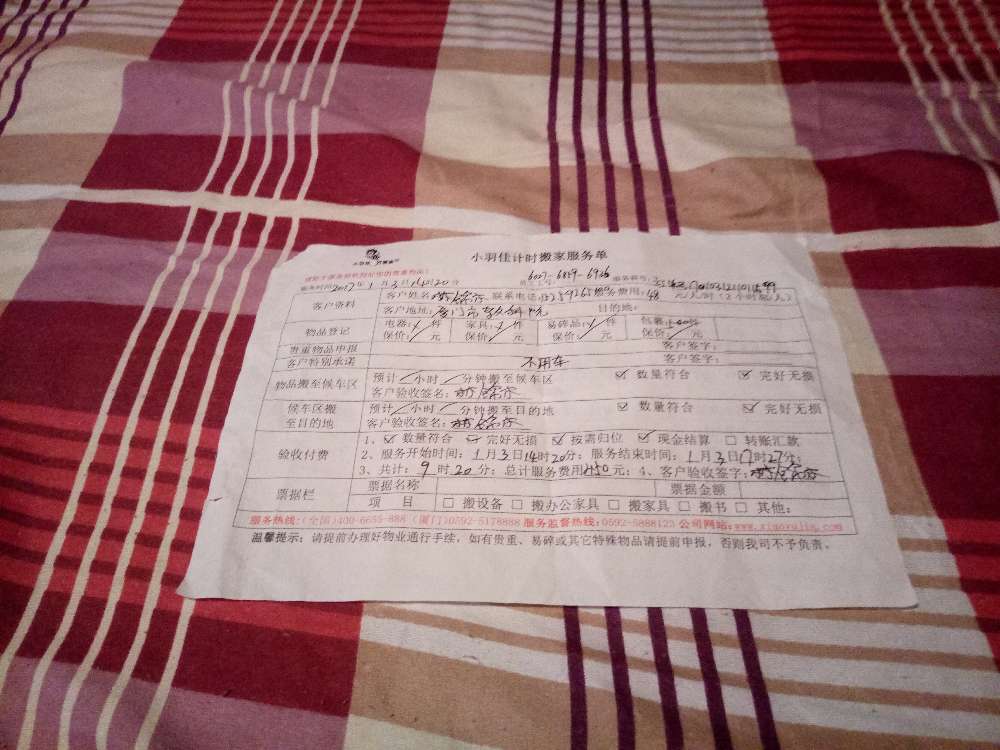 小羽佳计时搬家服务单
服务时间2012年1月3日14时20分 6027-6829-6926
客户资料 客户姓名: 联系电话: 服务费用:48 元/人时(2小时起/人)
客户地址: 目的地:
物品登记 电器: 件 家具: 件 易碎品: 件 包裹: 件
保价: 元 保价: 元 保价: 元 保价: 元
贵重物品申报 客户签字:
客户特别承诺 不用车 客户签字:
物品搬至候车区 预计 小时 分钟搬至候车区 ☑ 数量符合 ☑ 完好无损
客户验收签名:
候车区搬至目的地 预计 小时 分钟搬至目的地 ☑ 数量符合 ☑ 完好无损
客户验收签名:
验收付费 1、☑ 数量符合 ☑ 完好无损 ☑ 按需归位 ☑ 现金结算 □ 转账汇款
2、服务开始时间:1月3日14时20分;服务结束时间:1月3日17时27分;
3、共计:9时20分;总计服务费用450元;4、客户验收签字:
票据栏 票据名称 票据金额
项 目 □ 搬设备 □ 搬办公家具 □ 搬家具 □ 搬书 □ 其他:
服务热线:(全国)400-6655-888 (厦门)0592-5178888 服务监督热线:0592-5888123 公司网站:
温馨提示:请提前办理好物业通行手续,如有贵重、易碎或其它特殊物品请提前申报,否则我司不予负责。